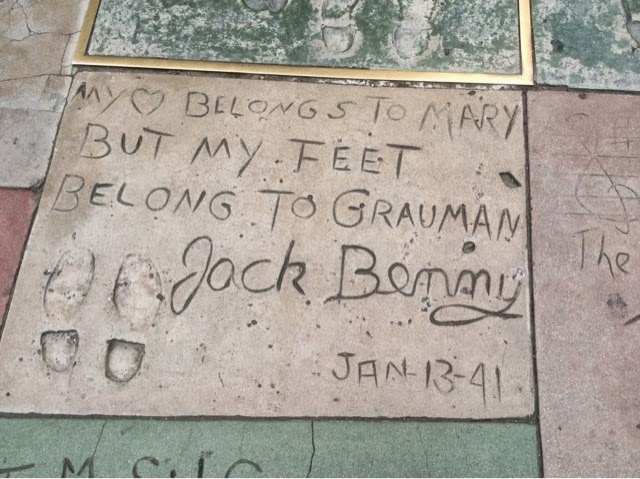 MY ♡ BELONGS TO MARY
BUT MY FEET
BELONG TO GRAUMAN
Jack Benny
JAN-13-41
The